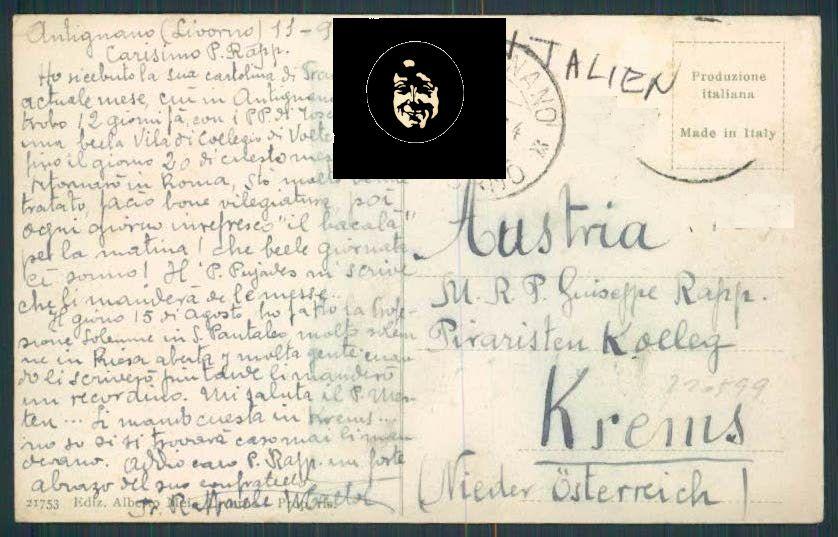 Antignano (Livorno) 11-9
Carisimo P. Rapp.
Ho ricebuto la sua cartolina di
actuale mese, cui in Antignano
trobo 12 giorni fà, con i PP. di
una bella Vila di Collegio di
fino il giorno 20 di cuesto mes
ritornarò in Roma, Stò molto
tratato, facio bone vilegiatura, poi
ogni giorno in refresco "il bacalà"
per la matina! che beele giornate
ci sonno! Il P. Pujades mi scrive
che li manderà de le messe..
Il giono 15 di Agosto, ho fatto la Profe-
sione Solemne in S. Pantaleo molto solem
ne in Kiesa aberta y molta gente cuan
do li scriverò più tarde li manderò
un recordino. Mi saluta il P.
ten ... Li mando cuesta in Krems...
no so si si trovarà caso mai li man
derano. Addio caro P. Rapp. un forte
abrazo del suo confratello
21753 Ediz.
ITALIEN
Produzione
italiana
Made in Italy
Austria
M. R. P. Guiseppe Rapp.
Piraristen Kolleg
Krems
(Nieder Österreich)